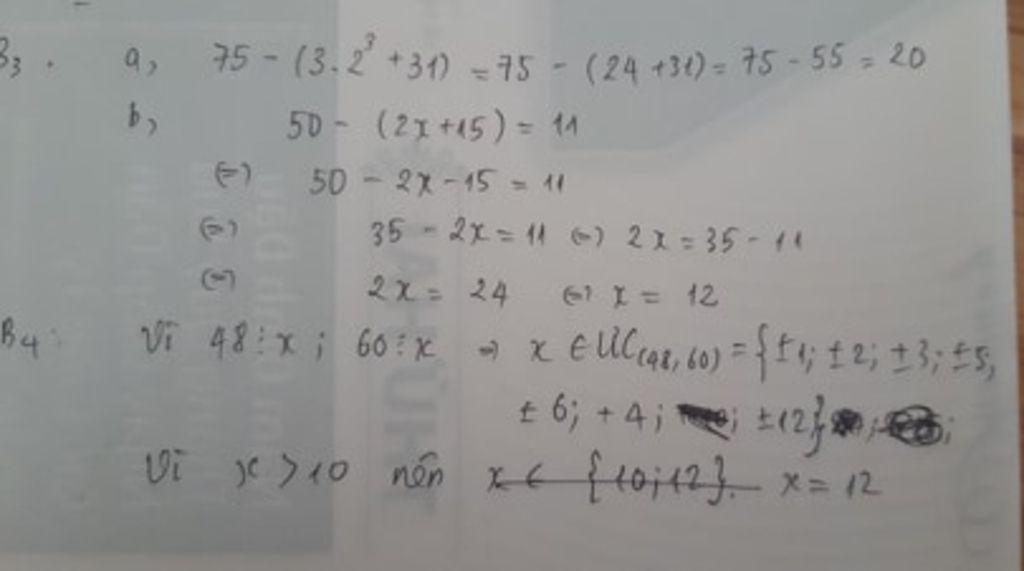 B3. a, 75 - (3.2³ + 31) = 75 - (24 + 31) = 75 - 55 = 20
b, 50 - (2x + 15) = 11
(=) 50 - 2x - 15 = 11
(=) 35 - 2x = 11 (=) 2x = 35 - 11
(=) 2x = 24 (=) x = 12
B4: Vì 48 ⋮ x ; 60 ⋮ x => x ∈ ƯC(48, 60) = {±1; ±2; ±3; ±5,
± 6; + 4; ; ±12} ; ;
Vì x > 10 nên x ∈ {10; 12}. x = 12